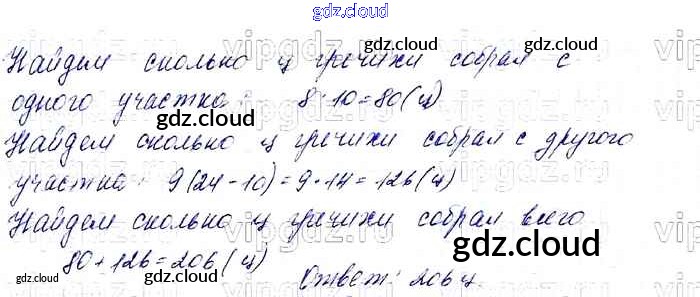 gdz.cloud
Найдем сколько ц гречихи собрал с
одного участка: 8·10=80(ц)
Найдем сколько ц гречихи собрал с другого
участка: 9(24-10)=9·14=126(ц)
Найдем сколько ц гречихи собрал всего
80+126=206(ц)
Ответ: 206 ц.
gdz.cloud
gdz.cloud
gdz.cloud
gdz.cloud
gdz.cloud
gdz.cloud
gdz.cloud